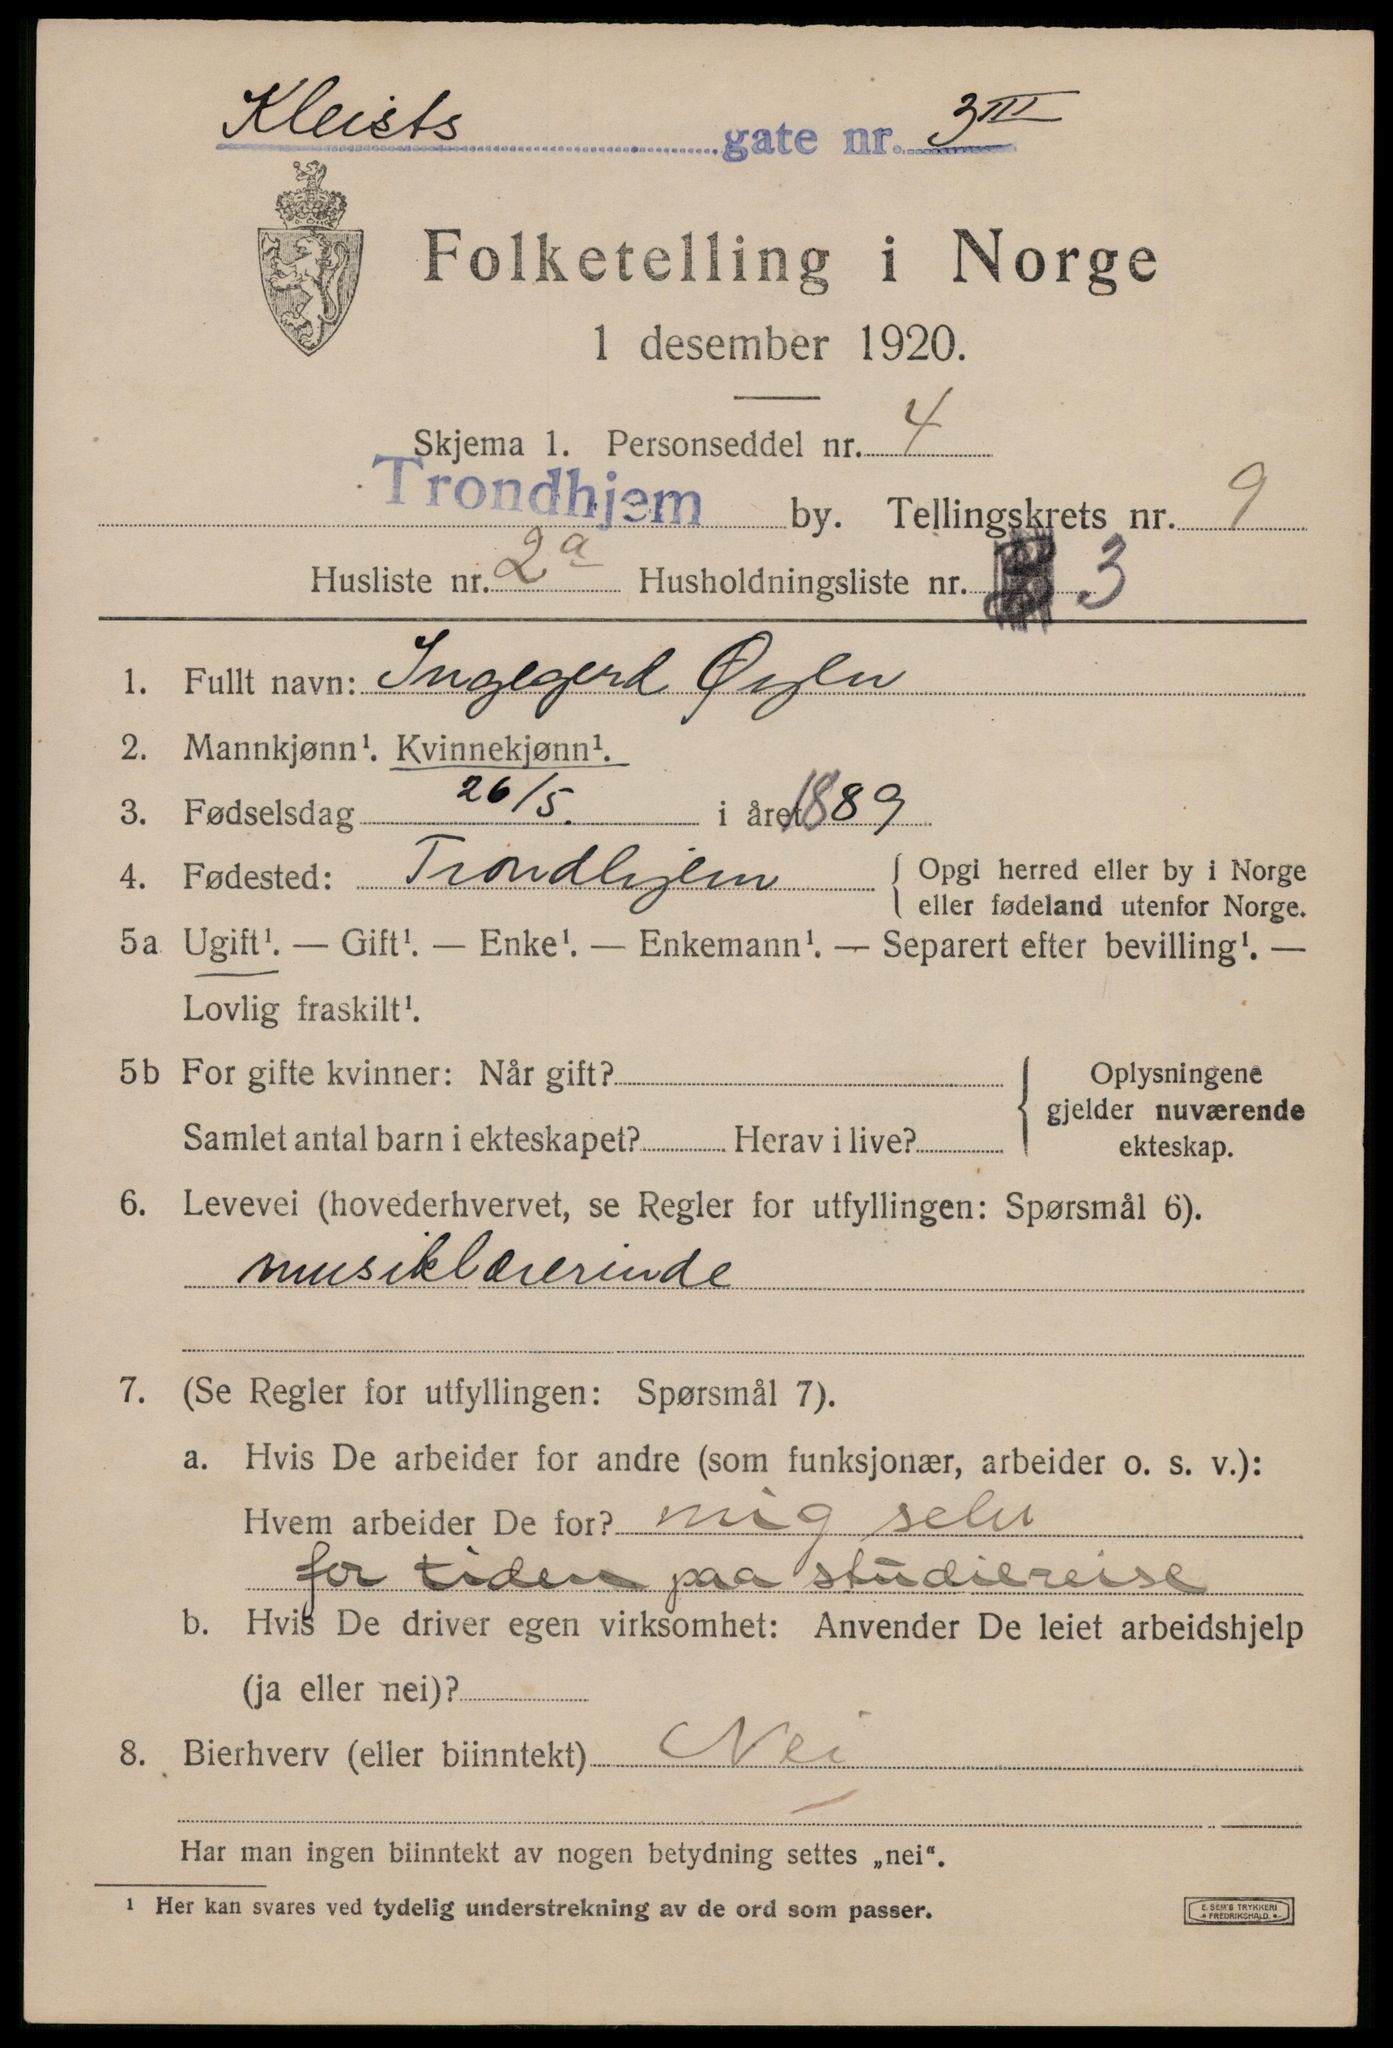 Kleists gate nr. 3III
Folketelling i Norge
1 desember 1920.
Skjema 1. Personseddel nr. 4
Trondhjem by. Tellingskrets nr. 9
Husliste nr. 2a Husholdningsliste nr. 3
1. Fullt navn: Ingegerd Øyen
2. Mannkjønn¹. Kvinnekjønn¹.
3. Fødselsdag 26/5. i året 1889
4. Fødested: Trondhjem { Opgi herred eller by i Norge
eller fødeland utenfor Norge.
5a Ugift¹. — Gift¹. — Enke¹. — Enkemann¹. — Separert efter bevilling¹. —
Lovlig fraskilt¹.
5b For gifte kvinner: Når gift? { Oplysningene
gjelder nuværende
Samlet antal barn i ekteskapet? Herav i live? ekteskap.
6. Levevei (hovederhvervet, se Regler for utfyllingen: Spørsmål 6).
musiklærerinde
7. (Se Regler for utfyllingen: Spørsmål 7).
a. Hvis De arbeider for andre (som funksjonær, arbeider o. s. v.):
Hvem arbeider De for? mig selv
for tiden paa studiereise
b. Hvis De driver egen virksomhet: Anvender De leiet arbeidshjelp
(ja eller nei)?
8. Bierhverv (eller biinntekt) Nei
Har man ingen biinntekt av nogen betydning settes „nei“.
¹ Her kan svares ved tydelig understrekning av de ord som passer.
E. SEM'S TRYKKERI
FREDRIKSHALD.